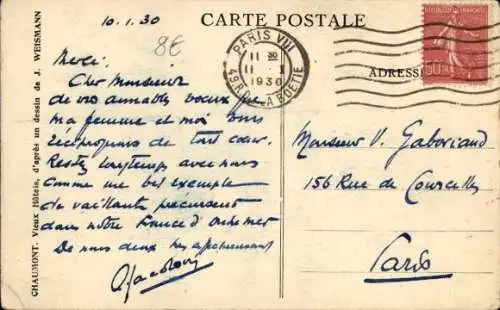 10.1.30
8€
CARTE POSTALE
PARIS VIII
11 30
11 . I
1930
49, R. LA BOETIE
ADRESSE
50
CHAUMONT. Vieux Hôtels, d'après un dessin de J. WEISMANN
Merci,
Cher Monsieur
de vos aimables voeux
ma femme et moi vous
réciproquons de tout cœur.
Restez longtemps avec nous
comme une bel exemple
de vaillants précurseur
dans notre France d'outremer
De nous deux très
Monsieur V. Gaboriaud
156 Rue de Courcelles
Paris